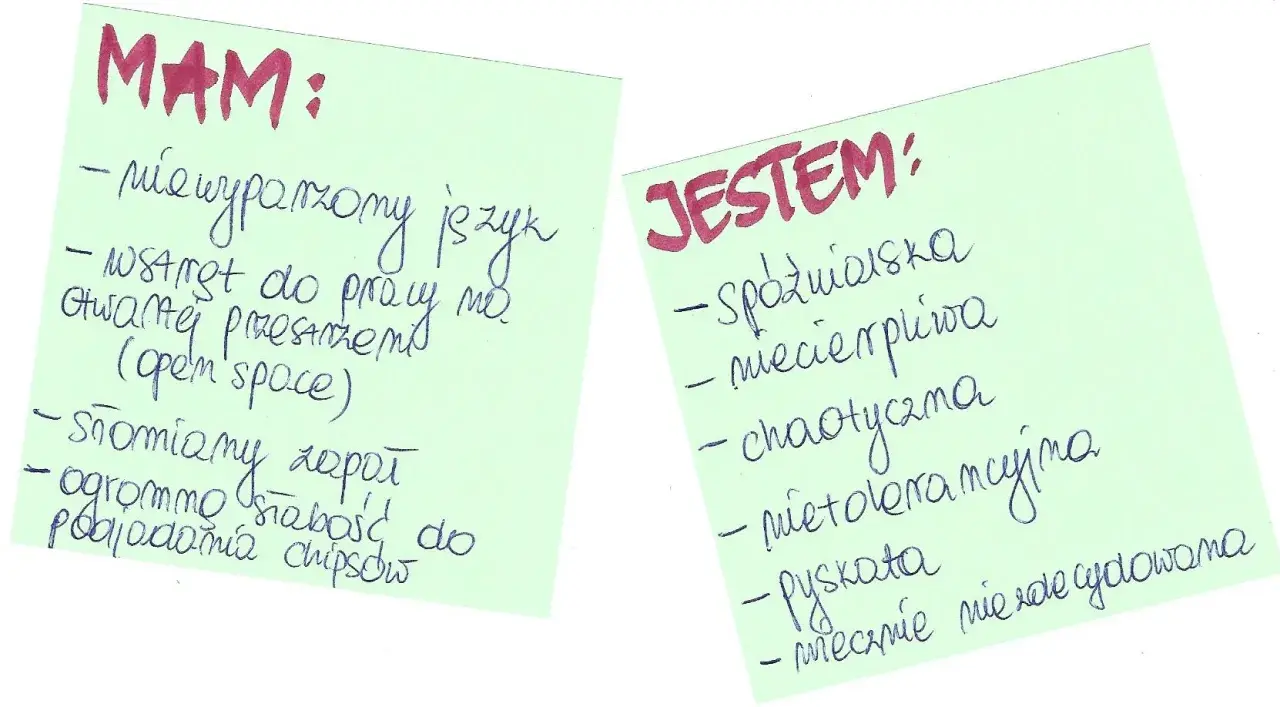 MAM:
- niewyparzony język
- wstręt do pracy na
otwartej przestrzeni
(open space)
- słomiany zapał
- ogromną słabość do
podjadania chipsów
JESTEM:
- spóźnialska
- niecierpliwa
- chaotyczna
- nietolerancyjna
- pyskata
- wiecznie niezdecydowana